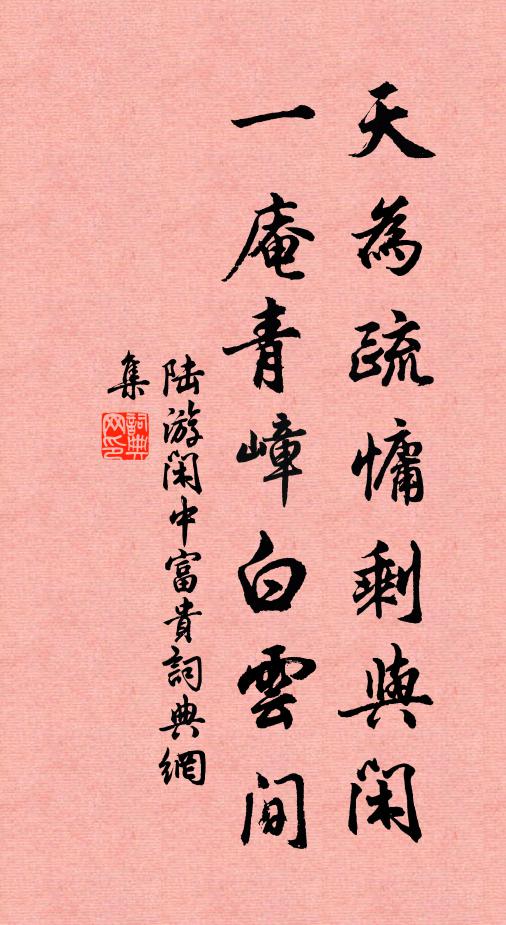 天為疏慵剩與閑
一庵青嶂白雲间
陆游閑中富貴詞典網
集
詞典
网印